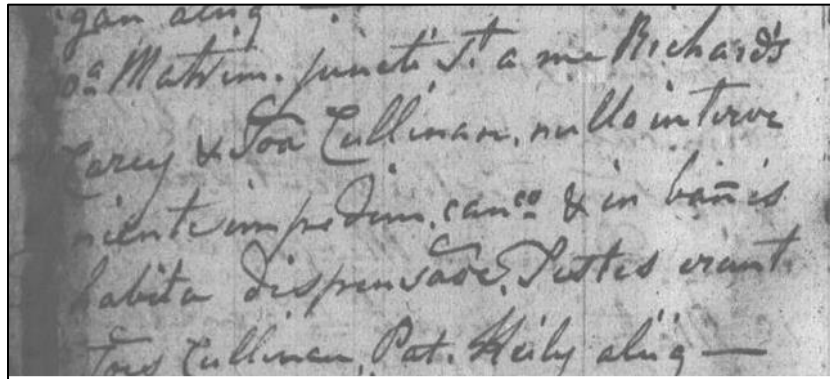 gan aliiq —
oa Matrim. juncti st a me Richard's
Carey & Joa Cullinan, nullo interve
niente impedim. canco & in bannis
habita dispensaoe. Testes erant
Jois Cullinan, Pat. Heily aliiq —